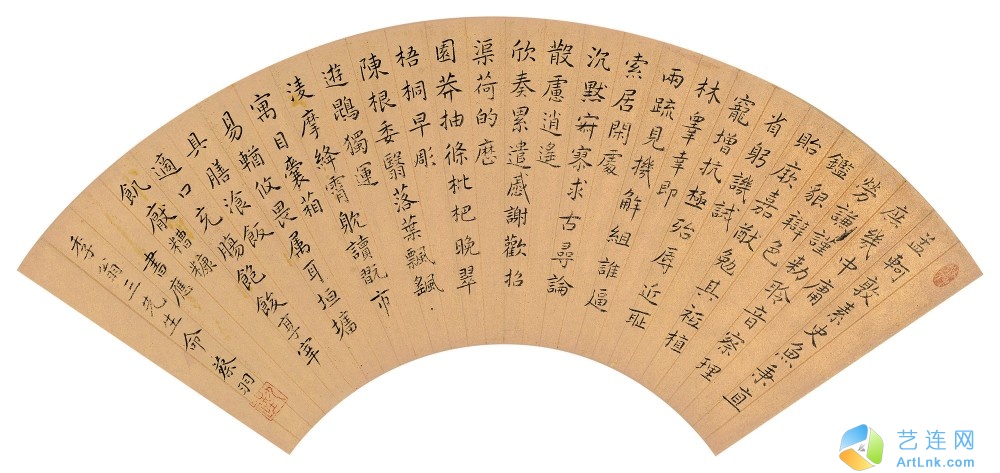 孟軻敦素史魚秉直
庶幾中庸
勞謙謹勑聆音察理
鑑貌辯色
貽厥嘉猷勉其祗植
省躬譏誡
寵增抗極殆辱近恥
林睪幸即
兩疏見機解組誰逼
索居閑處
沉默寂寥求古尋論
散慮逍遙
欣奏累遣慼謝歡招
渠荷的歷
園莽抽條枇杷晚翠
梧桐早彫
陳根委翳落葉飄颻
遊鵾獨運
凌摩絳霄耽讀翫市
寓目囊箱
易輶攸畏属耳垣墻
具膳飡飯
適口充腸飽飫享宰
飢猒糟糠書應
季翁三先生命蔡羽
艺连网
ArtLnk.com